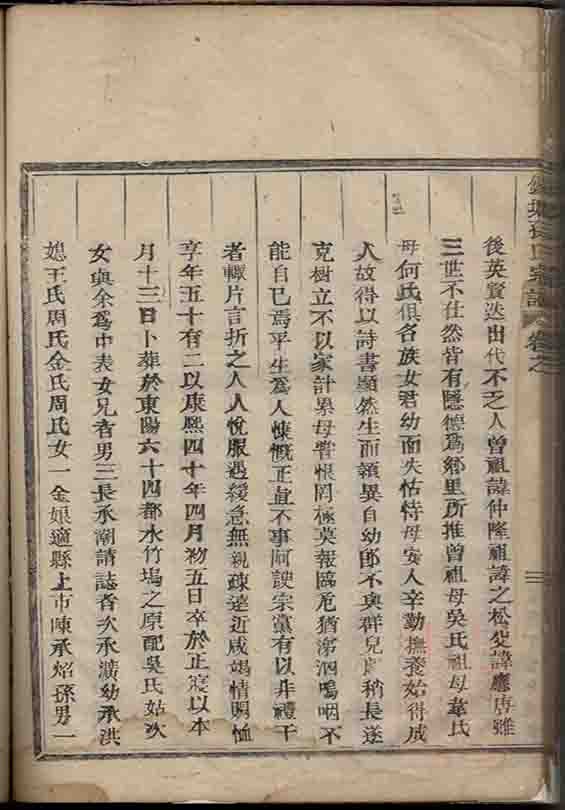 氏宗譜 卷之
後英賢迭出代不乏人曾祖諱仲隆祖諱之松父諱應唐雖
三世不仕然皆有隱德爲鄉里所推曾祖母吳氏祖母韋氏
母何氏俱名族女君幼而失怙恃母安人辛勤撫養始得成
人故得以詩書顯然生而穎異自幼卽不與群兒同稍長遂
克樹立不以家計累母嘗恨罔極莫報臨危猶涕泗嗚咽不
能自已焉平生爲人慷慨正直不事阿諛宗黨有以非禮干
者輙片言折之人人悅服遇緩急無親疎遠近咸竭情賙恤
享年五十有二以康熙四十年四月初五日卒於正寢以本
月十三日卜葬於東陽六十四都水竹塢之原配吳氏姑次
女與余爲中表女兄者男三長承潮請誌者次承濱幼承洪
媳王氏周氏金氏周氏女一金娘適縣上市陳承炤孫男一